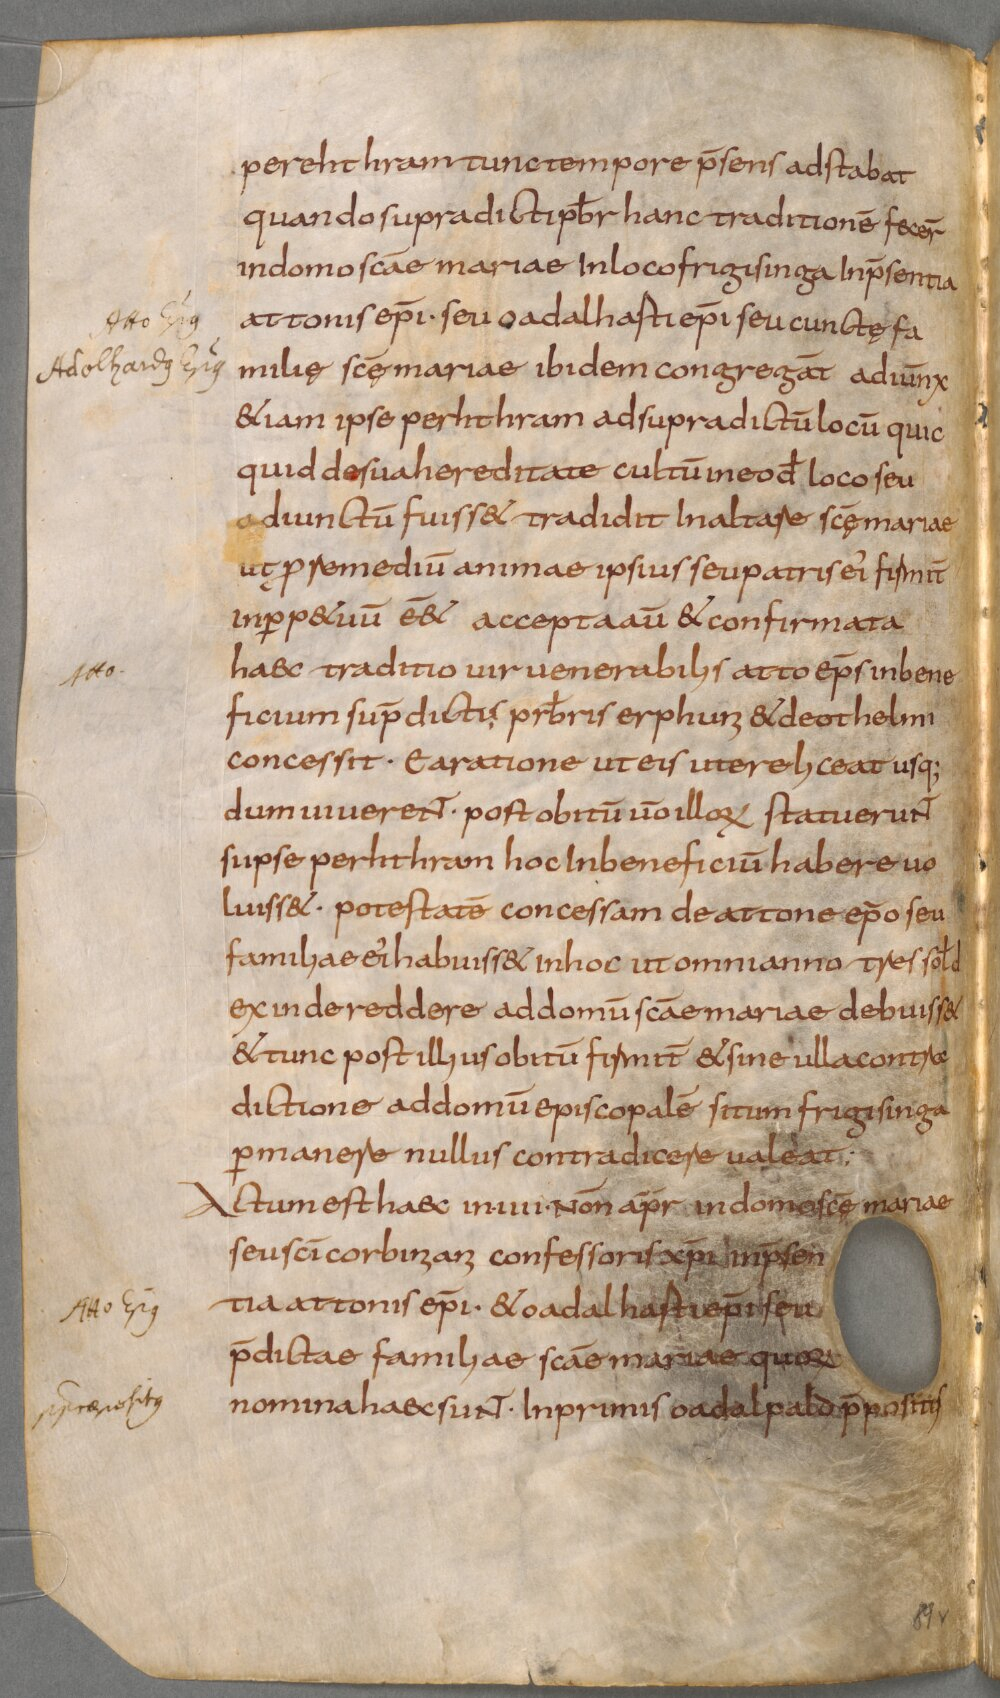 perehthram tunc tempore p̄sens adstabat
quando supradicti p̄br hanc traditionē fecer̄
in domo scāe mariae In loco frigisinga In p̄sentia
Atto Ep̄g
attonis ep̄i · seu oadalhasti ep̄i seu cunctę fa
Adolhardg Ep̄g
milię scę̄ mariae ibidem congregāt adiūnx
& iam ipse perhthram ad supradictū locū quic
quid de sua hereditate cultū in eod̄ loco seu
adiunctū fuiss& tradidit In altare scę̄ mariae
utę p remediū animae ipsius seu patris ei' firmit̄
in ꝑp&uū ēē& accepta aū & confirmata
Atto ·
haec traditio uir uenerabilis atto ep̄s in bene
ficium sup̄dictis prb̄ris erphunƺ & deothelmi
concessit · Ea ratione ut eis utere liceat usq;
dum uiuerent · post obitū uō illoꝝ statuerunt
si ipse perhthram hoc In beneficiū habere uo
luiss& · potestatē concessam de attone ep̄o seu
familiae ei' habuiss& in hoc ut omni anno tres sol̄d
exinde reddere ad domū scāe mariae debuiss&
& tunc post illius obitū firmit̄ & sine ulla contra
dictione ad domū episcopalē situm frigisinga
ꝑmanere nullus contradicere ualeat ;
Actum est haec in · iiii · Nōn ap̄r in domo scę̄ mariae
seu scī corbinƺanƺ confessoris xp̄i in p̄sen
Atto Ep̄g
tia attonis ep̄i · & oadalhasti ep̄i seu
p̄dictae familiae scāe mariae quoꝝ
p̄præpositg
nomina haec sunt · In primis oadalpald p̄positus
89v